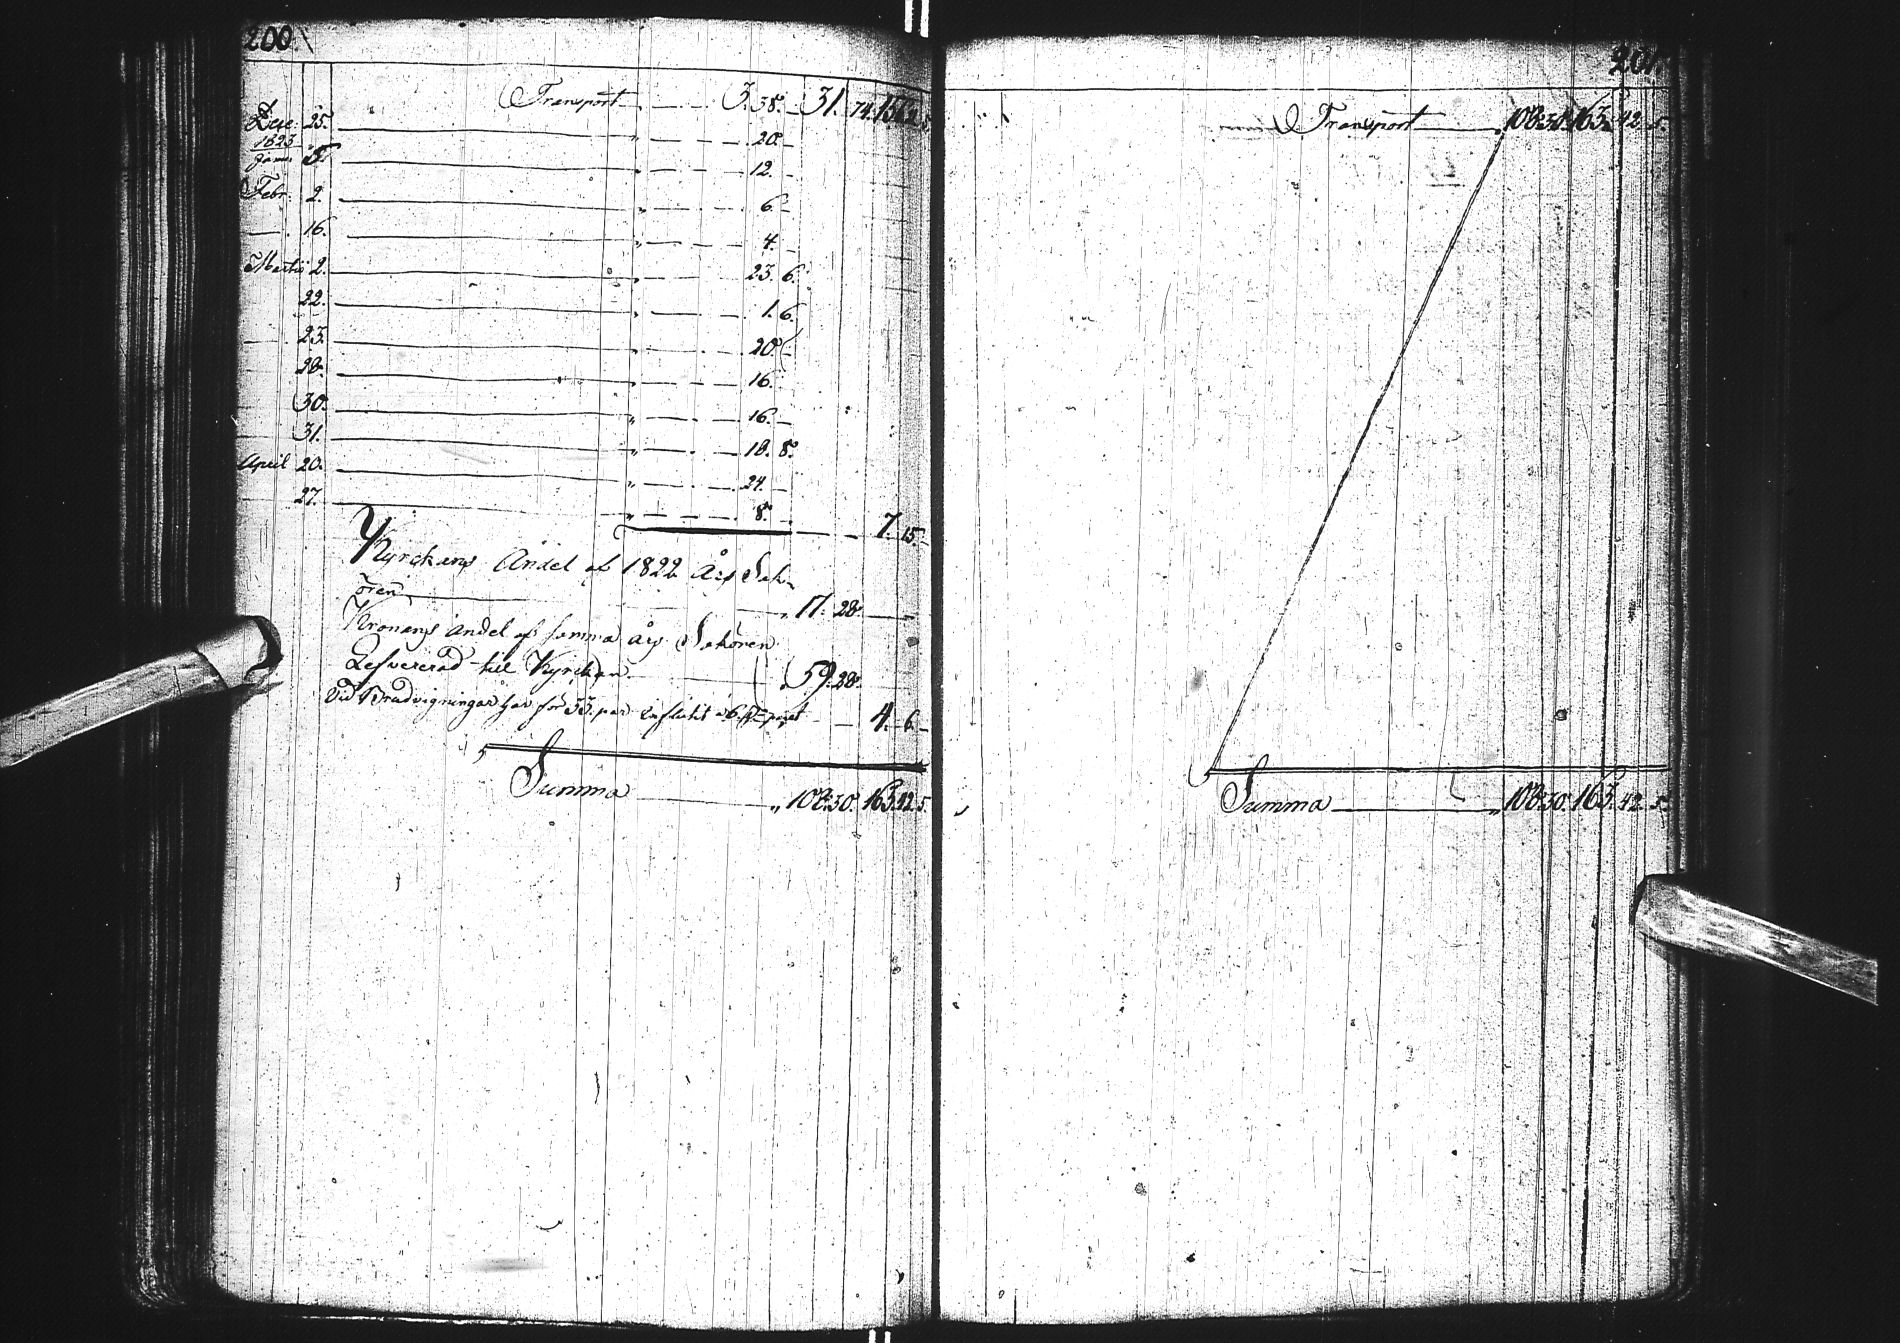 200.
Transport 3. 38. — 31. 74. 156. 2. 5.
Dec. 25. " 20. —
1823
Janu. 5. " 12. —
Febr. 2. " 6. —
— 16. " 4. —
Martii 2. " 23. 6.
22. " 1. 6.
23. " 20. —
28. " 16.
30. " 16. —
31. " 18. 8.
April 20. " 24. —
27. " 8. —
7. 15. —
Kyrckans Andel af 1822 Års Sak-
ören " 17. 28. —
Kronans andel af samma års Sakören
Lefvererad till Kyrckan " 59. 28.
Vid Brudvigningar har för 33. par influtit à 6. paret — 4. 6. —
Summa " 108. 30. 163. 42. 5.
201.
Transport " 108. 30. 163. 42. 5.
Summa " 108. 30. 163. 42. 5.